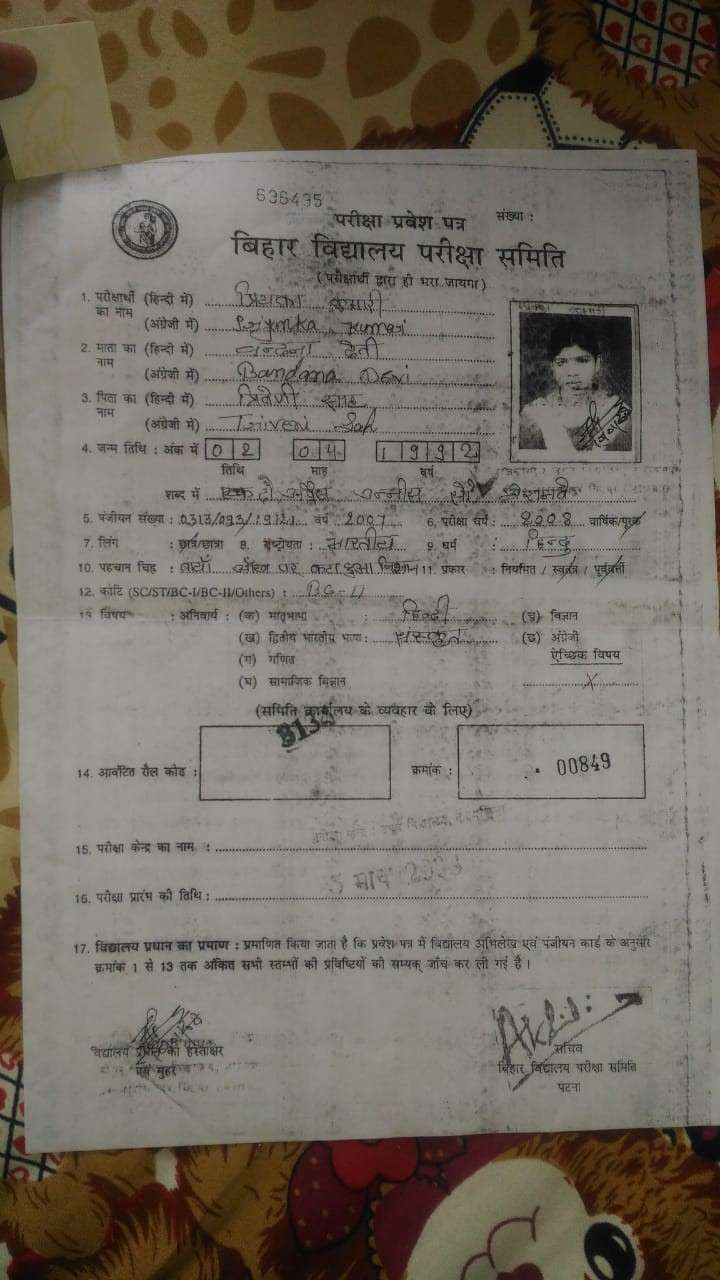 636435
परीक्षा प्रवेश पत्र संख्या :
बिहार विद्यालय परीक्षा समिति
(परीक्षार्थी द्वारा ही भरा जायगा)
1. परीक्षार्थी (हिन्दी में) कुमारी
का नाम (अंग्रेजी में) Kumari
2. माता का (हिन्दी में) वन्दना देवी
नाम (अंग्रेजी में) Bandana Devi
3. पिता का (हिन्दी में) त्रिवेणी साह
नाम (अंग्रेजी में) Triveni Sah
4. जन्म तिथि : अंक में 02 04 1992
तिथि माह वर्ष
शब्द में दो अप्रैल उन्नीस सौ
5. पंजीयन संख्या : वर्ष 2007 6. परीक्षा वर्ष : 2008 वार्षिक/पूरक
7. लिंग : छात्र/छात्रा 8. राष्ट्रीयता : भारतीय 9. धर्म : हिन्दु
10. पहचान चिह्न : पर कटा हुआ निशान 11. प्रकार : नियमित / स्वतंत्र / पूर्ववर्ती
12. कोटि (SC/ST/BC-I/BC-II/Others) :
13 विषय : अनिवार्य : (क) मातृभाषा : हिन्दी (च) विज्ञान
(ख) द्वितीय भारतीय भाषा : संस्कृत (छ) अंग्रेजी
(ग) गणित ऐच्छिक विषय
(घ) सामाजिक विज्ञान X
(समिति कार्यालय के व्यवहार के लिए)
14. आवंटित रौल कोड : क्रमांक : 00849
15. परीक्षा केन्द्र का नाम :
16. परीक्षा प्रारंभ की तिथि :
17. विद्यालय प्रधान का प्रमाण : प्रमाणित किया जाता है कि प्रवेश पत्र में विद्यालय अभिलेख एवं पंजीयन कार्ड के अनुसार
क्रमांक 1 से 13 तक अंकित सभी स्तम्भों की प्रविष्टियों की सम्यक् जाँच कर ली गई है।
विद्यालय प्रधान का हस्ताक्षर सचिव
एवं मुहर बिहार विद्यालय परीक्षा समिति
पटना